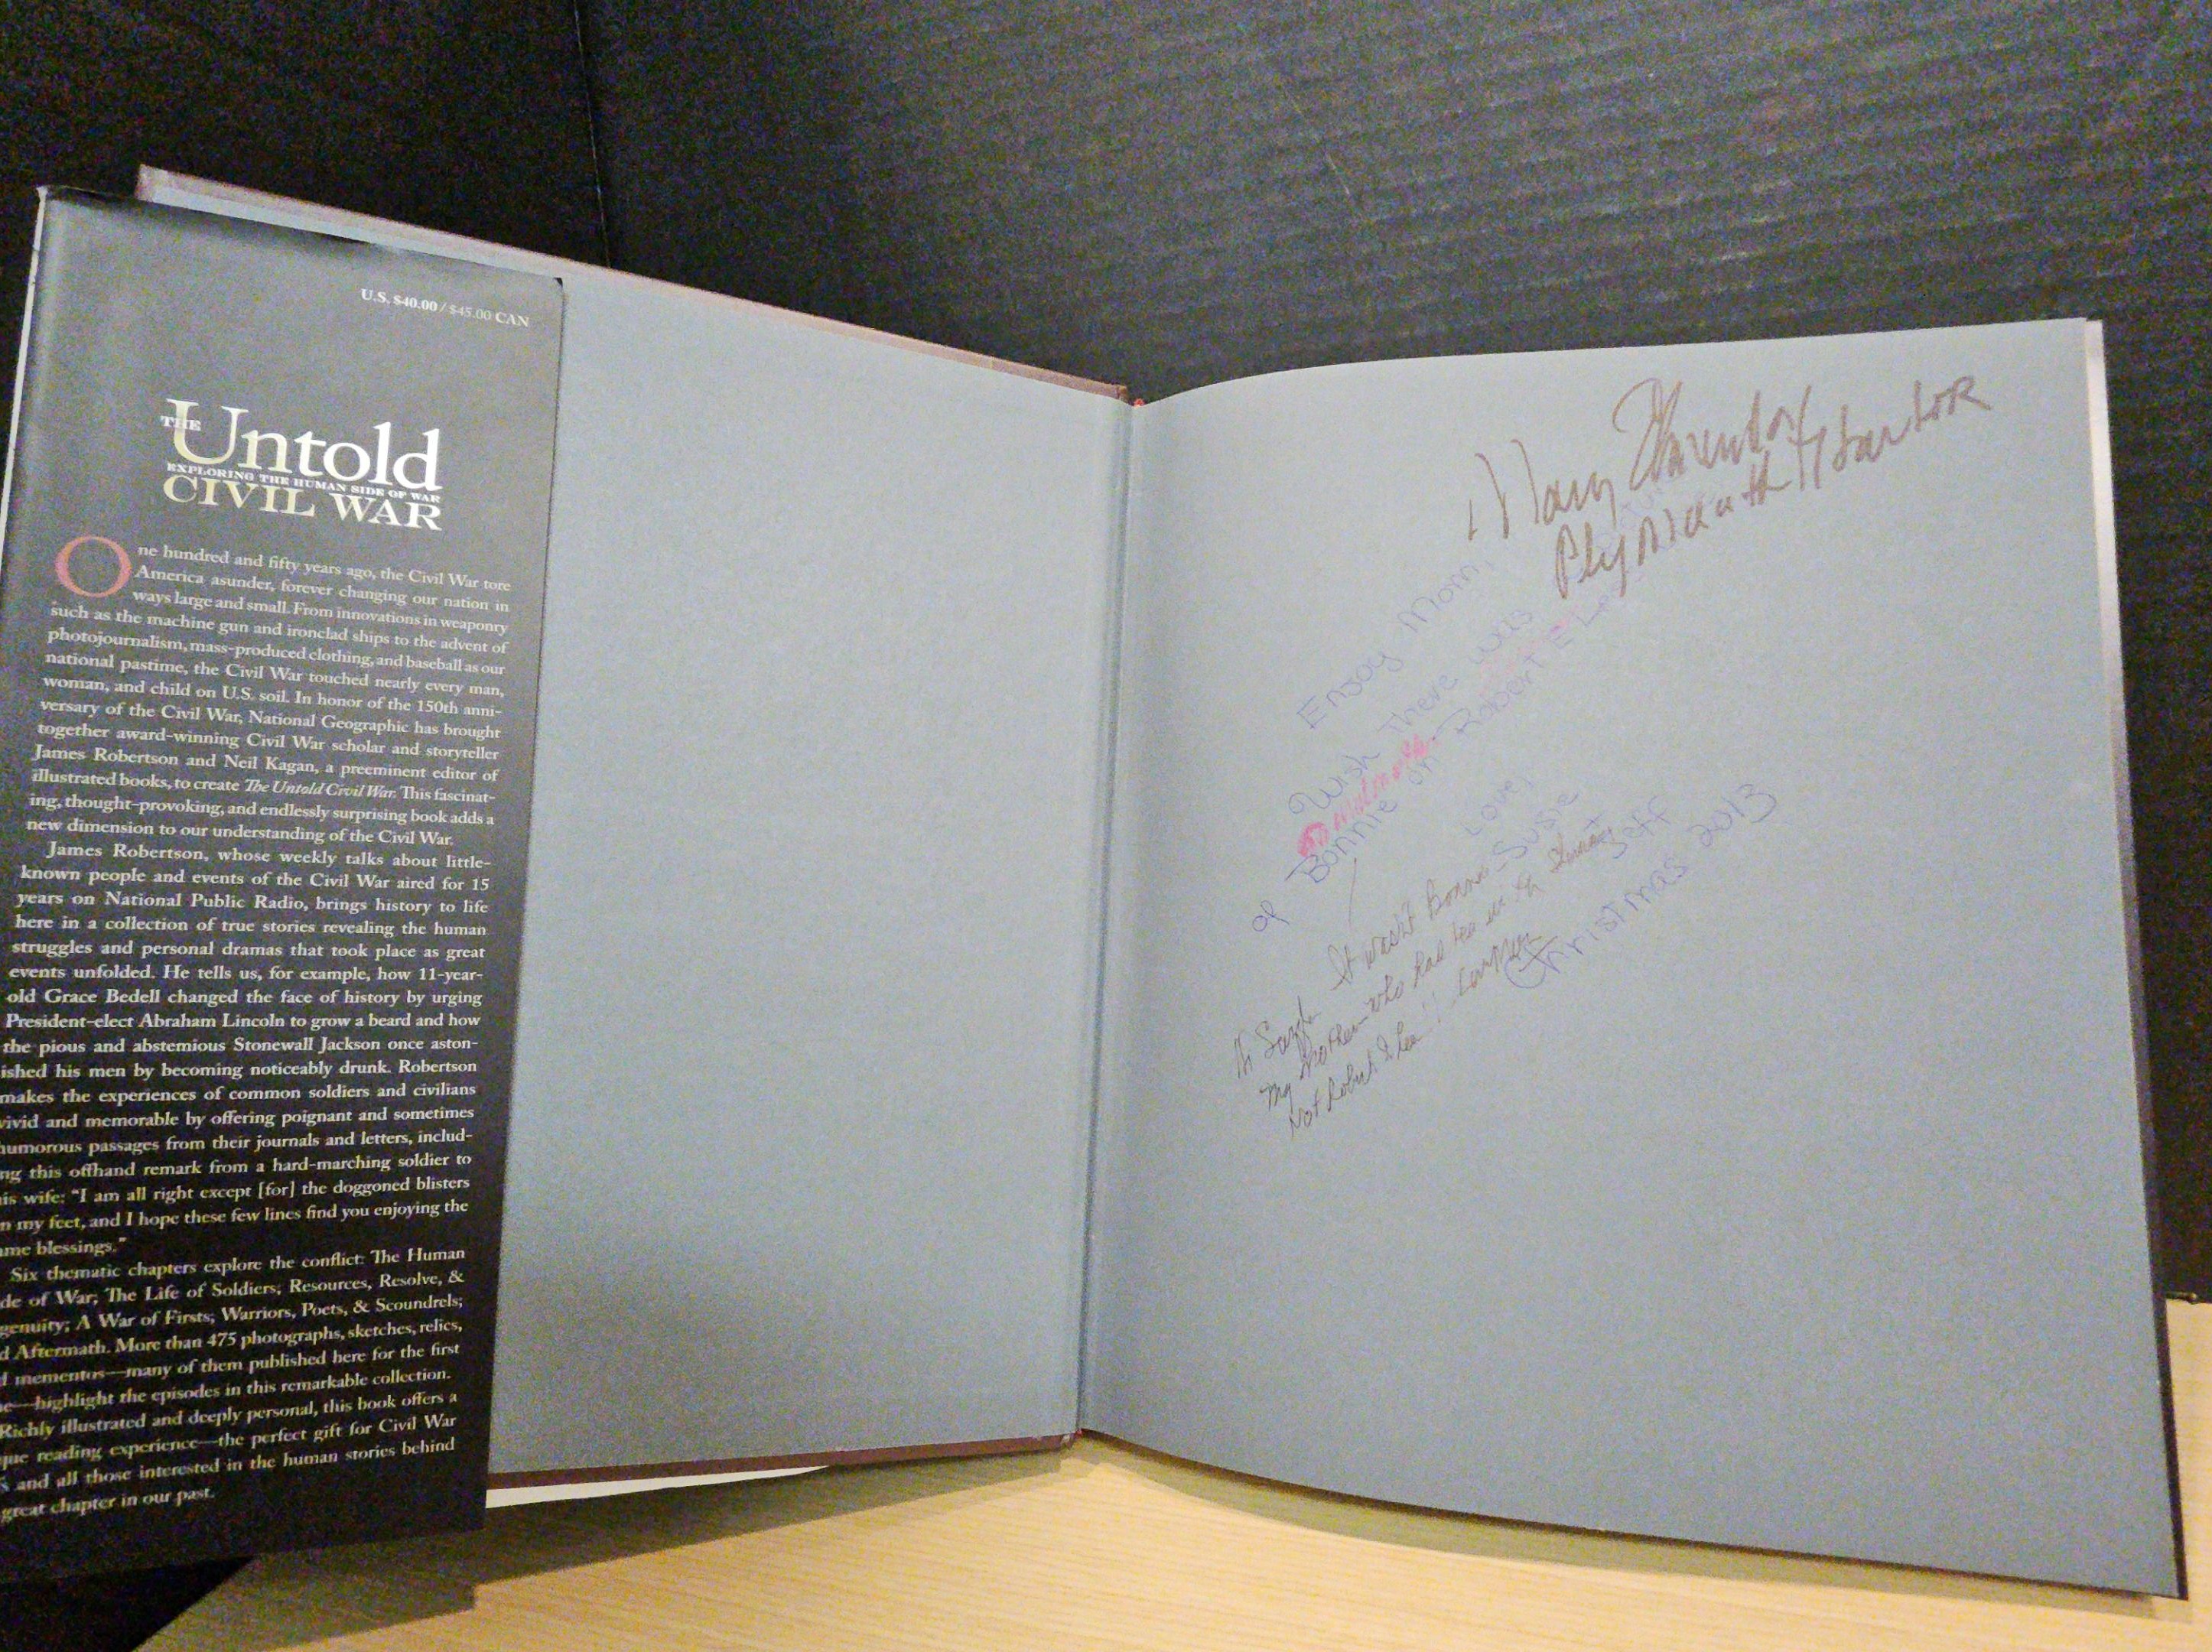 U.S. $40.00 / $45.00 CAN
THE Untold
EXPLORING THE HUMAN SIDE OF WAR
CIVIL WAR
One hundred and fifty years ago, the Civil War tore
America asunder, forever changing our nation in
ways large and small. From innovations in weaponry
such as the machine gun and ironclad ships to the advent of
photojournalism, mass-produced clothing, and baseball as our
national pastime, the Civil War touched nearly every man,
woman, and child on U.S. soil. In honor of the 150th anni-
versary of the Civil War, National Geographic has brought
together award-winning Civil War scholar and storyteller
James Robertson and Neil Kagan, a preeminent editor of
illustrated books, to create The Untold Civil War. This fascinat-
ing, thought-provoking, and endlessly surprising book adds a
new dimension to our understanding of the Civil War.
James Robertson, whose weekly talks about little-
known people and events of the Civil War aired for 15
years on National Public Radio, brings history to life
here in a collection of true stories revealing the human
struggles and personal dramas that took place as great
events unfolded. He tells us, for example, how 11-year-
old Grace Bedell changed the face of history by urging
President-elect Abraham Lincoln to grow a beard and how
the pious and abstemious Stonewall Jackson once aston-
ished his men by becoming noticeably drunk. Robertson
makes the experiences of common soldiers and civilians
vivid and memorable by offering poignant and sometimes
humorous passages from their journals and letters, includ-
ng this offhand remark from a hard-marching soldier to
is wife: "I am all right except [for] the doggoned blisters
n my feet, and I hope these few lines find you enjoying the
ame blessings."
Six thematic chapters explore the conflict: The Human
de of War; The Life of Soldiers; Resources, Resolve, &
genuity; A War of Firsts; Warriors, Poets, & Scoundrels;
d Aftermath. More than 475 photographs, sketches, relics,
d mementos—many of them published here for the first
e—highlight the episodes in this remarkable collection.
Richly illustrated and deeply personal, this book offers a
que reading experience—the perfect gift for Civil War
s and all those interested in the human stories behind
great chapter in our past.
Mary
Plymouth Harbor
Enjoy Mom,
Wish There was
of Bonnie or Robert E Lee
Love,
Susie
Jeff
Christmas 2013
It wasn't Bonnie
my Mother who had tea with
Not Robert E Lee!!